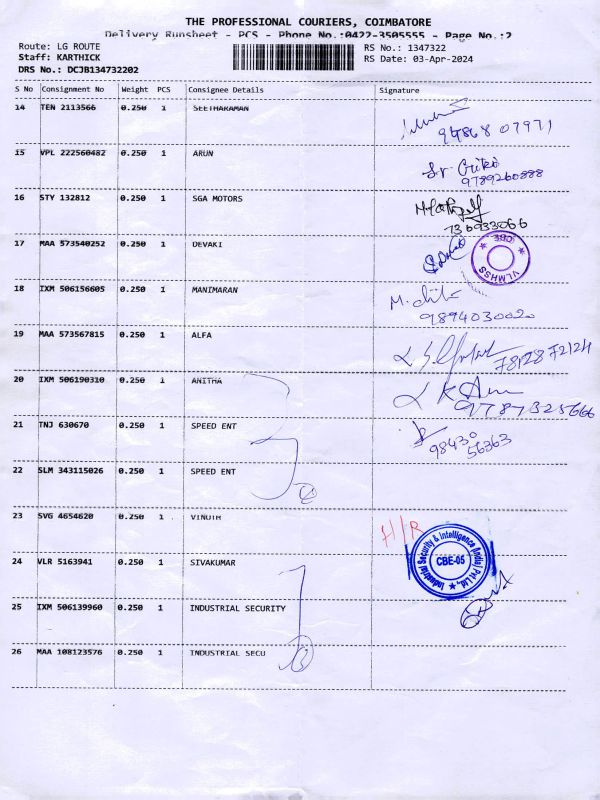 THE PROFESSIONAL COURIERS, COIMBATORE
Delivery Runsheet - PCS - Phone No.:0422-3505555 - Page No.:2
Route: LG ROUTE
RS No.: 1347322
Staff: KARTHICK
RS Date: 03-Apr-2024
DRS No.: DCJB134732202
S No Consignment No Weight PCS Consignee Details Signature
14 TEN 2113566 0.250 1 SEETHARAMAN
94868 07971
15 VPL 222560482 0.250 1 ARUN
9789260888
16 STY 132812 0.250 1 SGA MOTORS
736933066
17 MAA 573540252 0.250 1 DEVAKI
CBE
VLMHSS
18 IXM 506156605 0.250 1 MANIMARAN
9894030020
19 MAA 573567815 0.250 1 ALFA
78128 72124
20 IXM 506190310 0.250 1 ANITHA
9787325666
21 TNJ 630670 0.250 1 SPEED ENT
98430
56363
22 SLM 343115026 0.250 1 SPEED ENT
23 SVG 4654620 0.250 1 VINOTH
H/R
Industrial Security & Intelligence (India) Pvt.Ltd.,
CBE-05
24 VLR 5163941 0.250 1 SIVAKUMAR
25 IXM 506139960 0.250 1 INDUSTRIAL SECURITY
26 MAA 108123576 0.250 1 INDUSTRIAL SECU